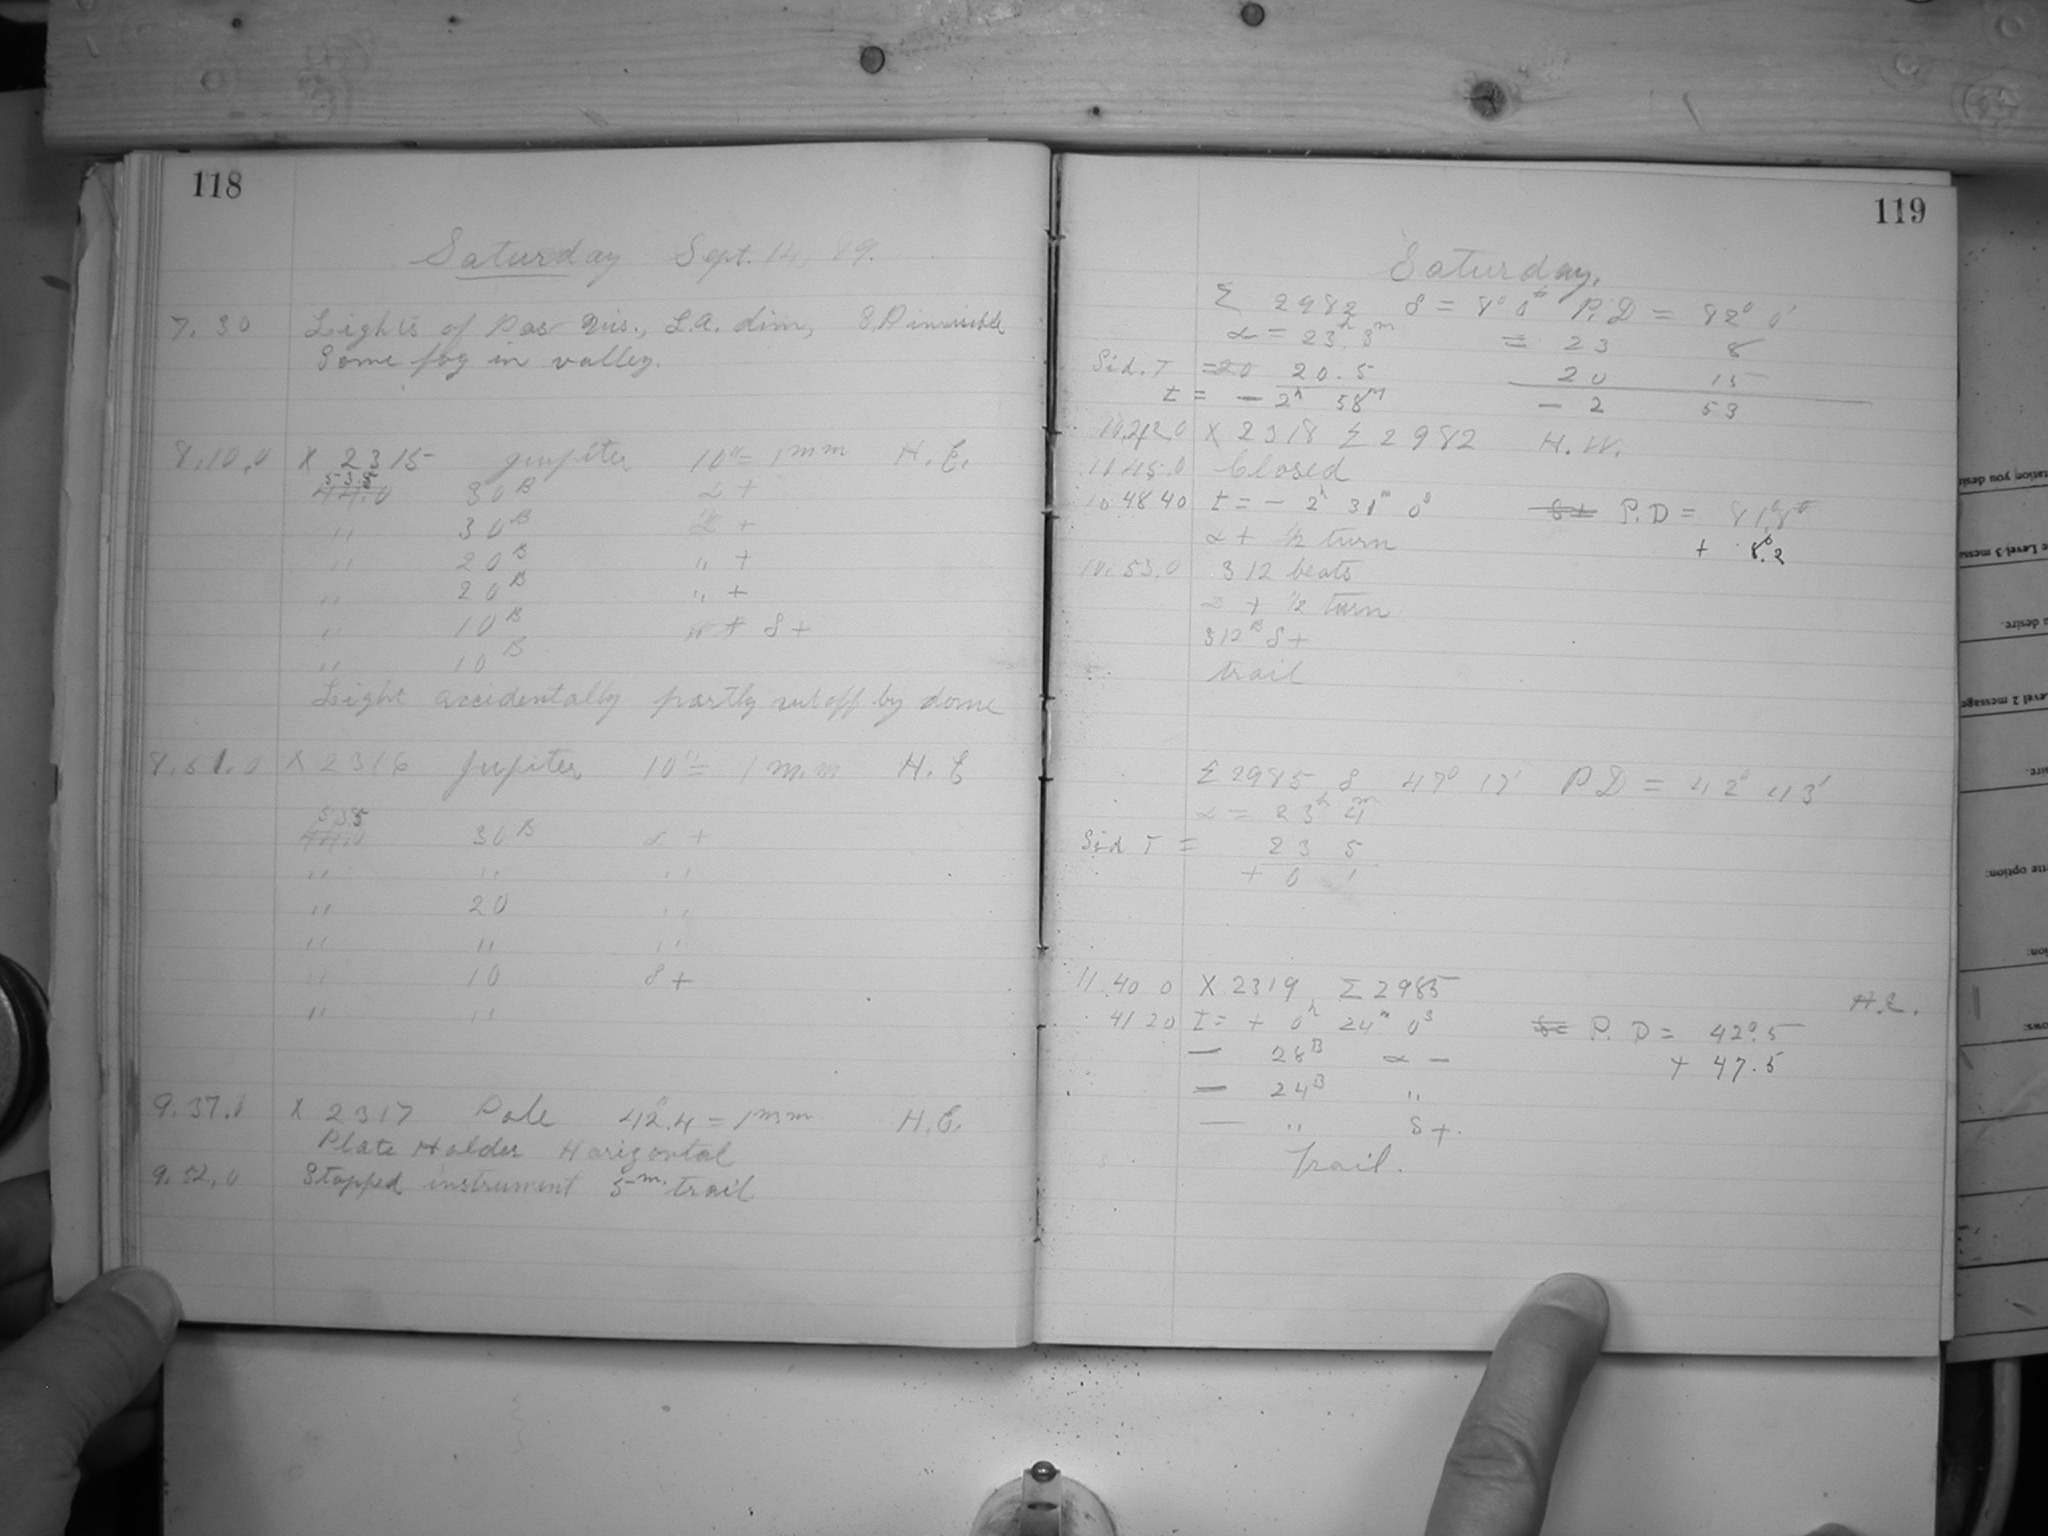 118
Saturday Sept. 14, 89.
7.30 Lights of Pas vis., L.A. dim, S.P invisible
Some fog in valley.
8.10.0 X 2315 Jupiter 10"= 1mm H.E.
53.5
44.0 30B α +
" 30B α +
" 20B " +
" 20B " +
" 10B " + δ +
" 10B
Light accidentally partly cut off by dome
8.51.0 X 2316 Jupiter 10"= 1 m.m H.E
53.5
44.0 30B α +
" " "
" 20 "
" " "
" 10 δ +
" "
9.37.0 X 2317 Pole 42".4 = 1mm H.E.
Plate Holder Horizontal
9.52.0 Stopped instrument 5m. trail
119
Saturday.
Σ 2982 δ = 8° 0' P.D = 82° 0'
α = 23h. 3m = 23 8
Sid. T = 20 20.5 20 15
t = - 2h 58m - 2 53
10.42.0 X 2318 Σ 2982 H.W.
10.45.0 Closed
10 48 40 t = - 2h 31m 0s P.D = 81°.8
+ 8°.2
α + 1/2 turn
10.53.0 312 beats
α + 1/2 turn
312B δ +
trail
Σ 2985 δ 47° 17' PD = 42° 43'
α = 23h 4m
Sid T = 23 5
+ 0 1
11 40 0 X 2319, Σ 2985 H.E.
41 20 t = + 0h 24m 0s P. D = 42°.5
+ 47.5
— 28B α —
— 24B "
— " δ +.
Trail.